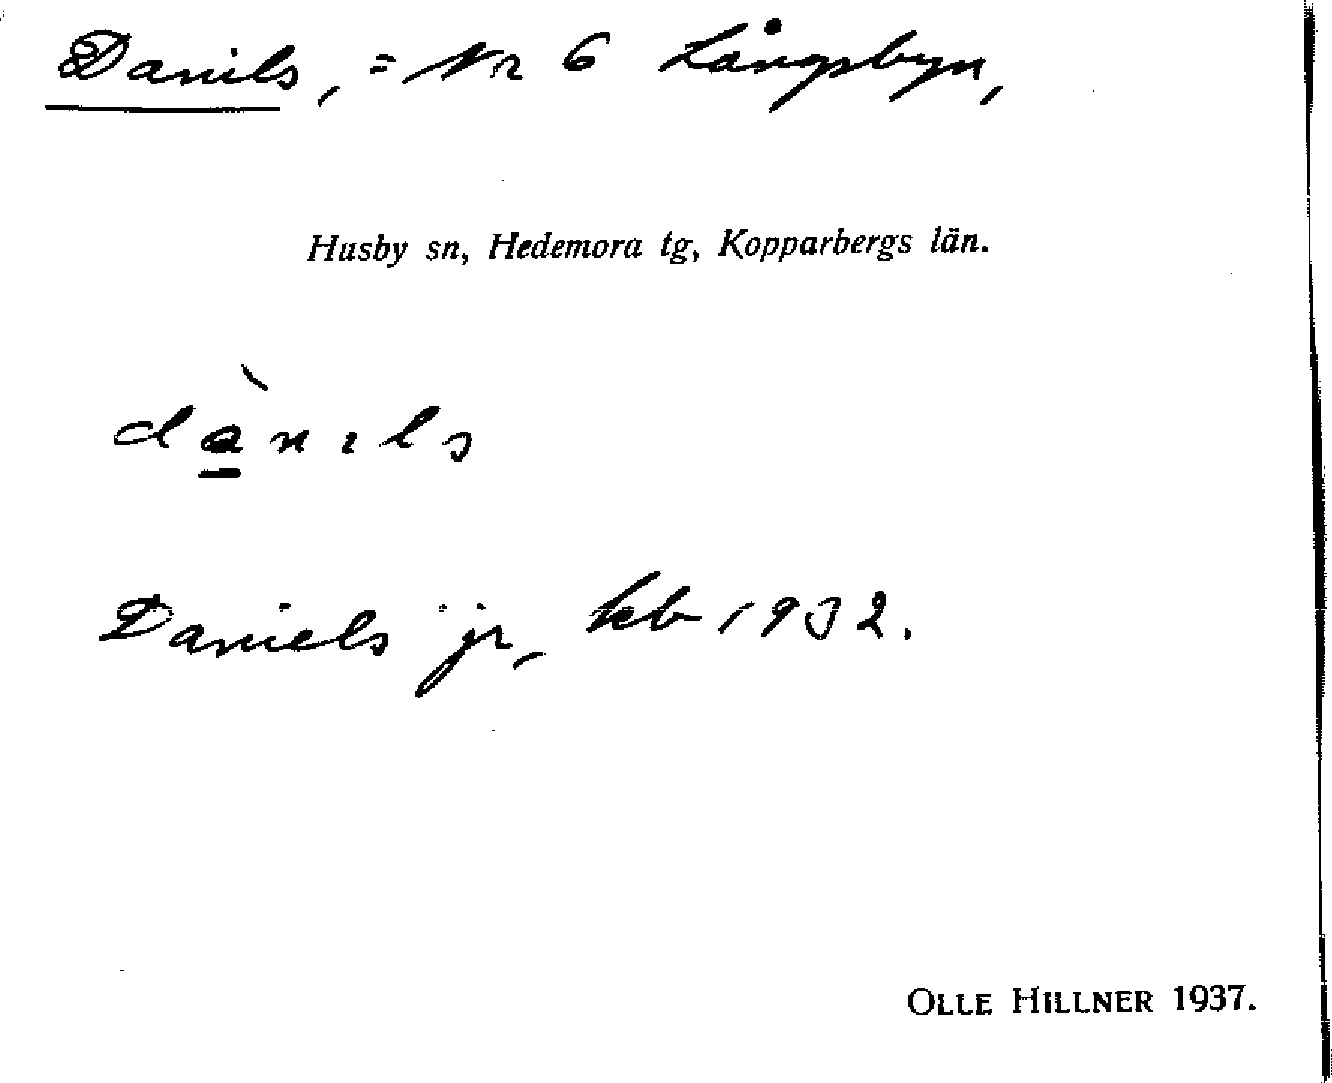 Danils, = Nr 6 Långsbyn,
Husby sn, Hedemora tg, Kopparbergs län.
dànıls
Daniels jr, kb 1932.
OLLE HILLNER 1937.